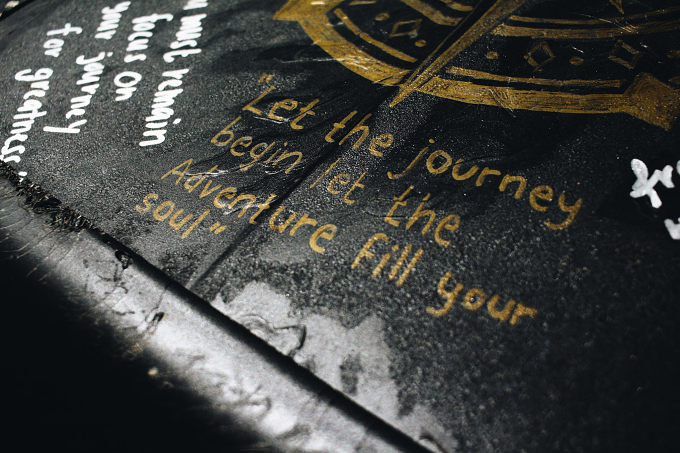 u must remain
focus on
your journey
for greatness"
"Let the journey
begin let the
Adventure fill your
soul"